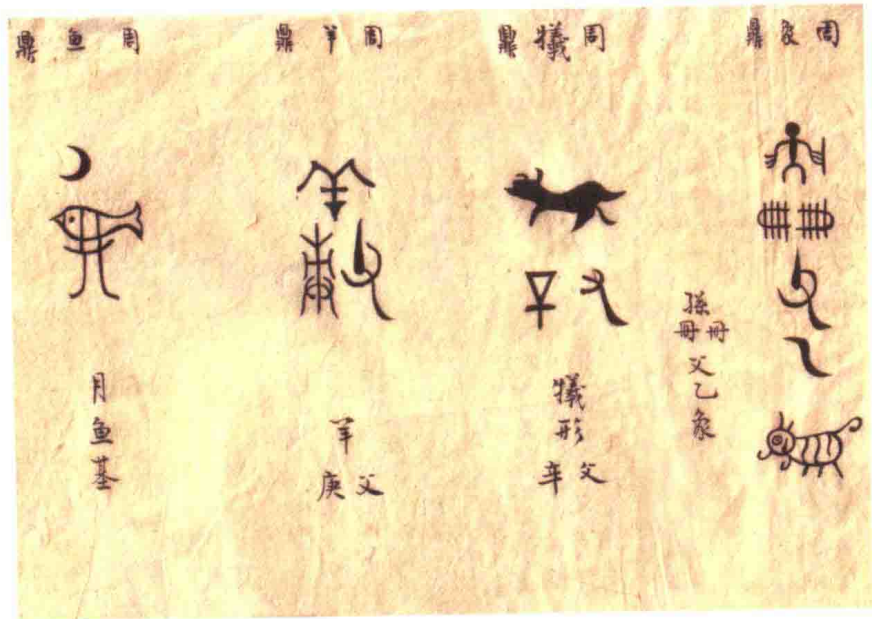 周象鼎
孫
冊冊
父乙象
周犠鼎
犠形
父辛
周羊鼎
羊
父庚
周魚鼎
月魚基